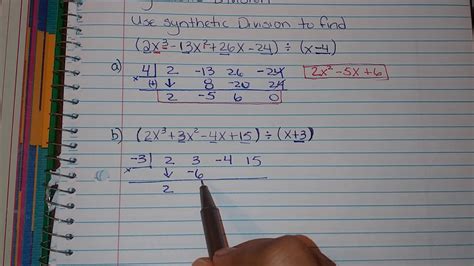 Use synthetic Division to find
(2x³-13x²+26x-24) ÷ (x-4)
a) 4| 2 -13 26 -24 2x²-5x+6
x (+) ↓ 8 -20 24
2 -5 6 0
b) (2x³+3x²-4x+15) ÷ (x+3)
-3| 2 3 -4 15
x ↓ -6
2